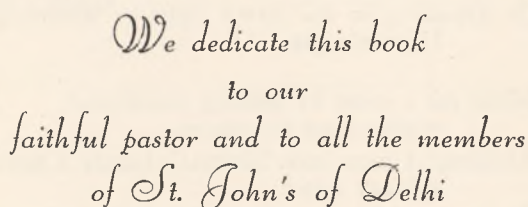 We dedicate this book
to our
faithful pastor and to all the members
of St. John's of Delhi